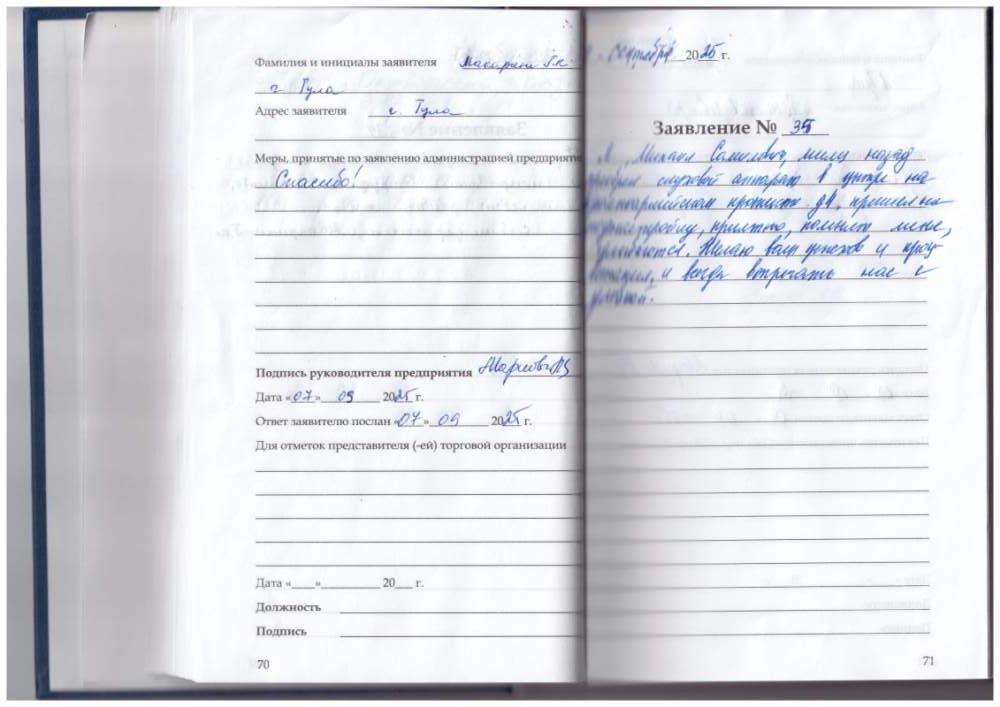 Фамилия и инициалы заявителя Макарина Г.К.
г Тула
Адрес заявителя г. Тула
Меры, принятые по заявлению администрацией предприятия
Спасибо!
Подпись руководителя предприятия
Дата «07» 09 2025 г.
Ответ заявителю послан «07» 09 2025 г.
Для отметок представителя (-ей) торговой организации
Дата «___»_________ 20___ г.
Должность
Подпись
70
сентября 2025 г.
Заявление № 35
Я Михаил месяц назад
слуховой аппарат в центре на
Красноармейском д4, пришел на
приятно, помнят меня,
улыбаются. Желаю вам успехов и проц
ветания, и всегда встречать нас с
улыбкой.
71